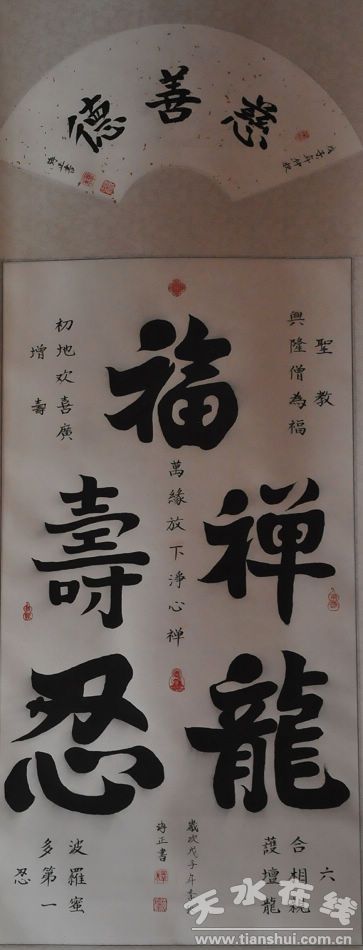 慈善德
戊子年仲秋
聖教
興隆僧為福
福
初地欢喜廣
增壽
萬緣放下淨心禅
禅
壽
龍
忍
六
合相親
護壇龍
歲次戊子年季
正書
波羅蜜
多第一
忍
天水在线
www.tianshui.com.cn